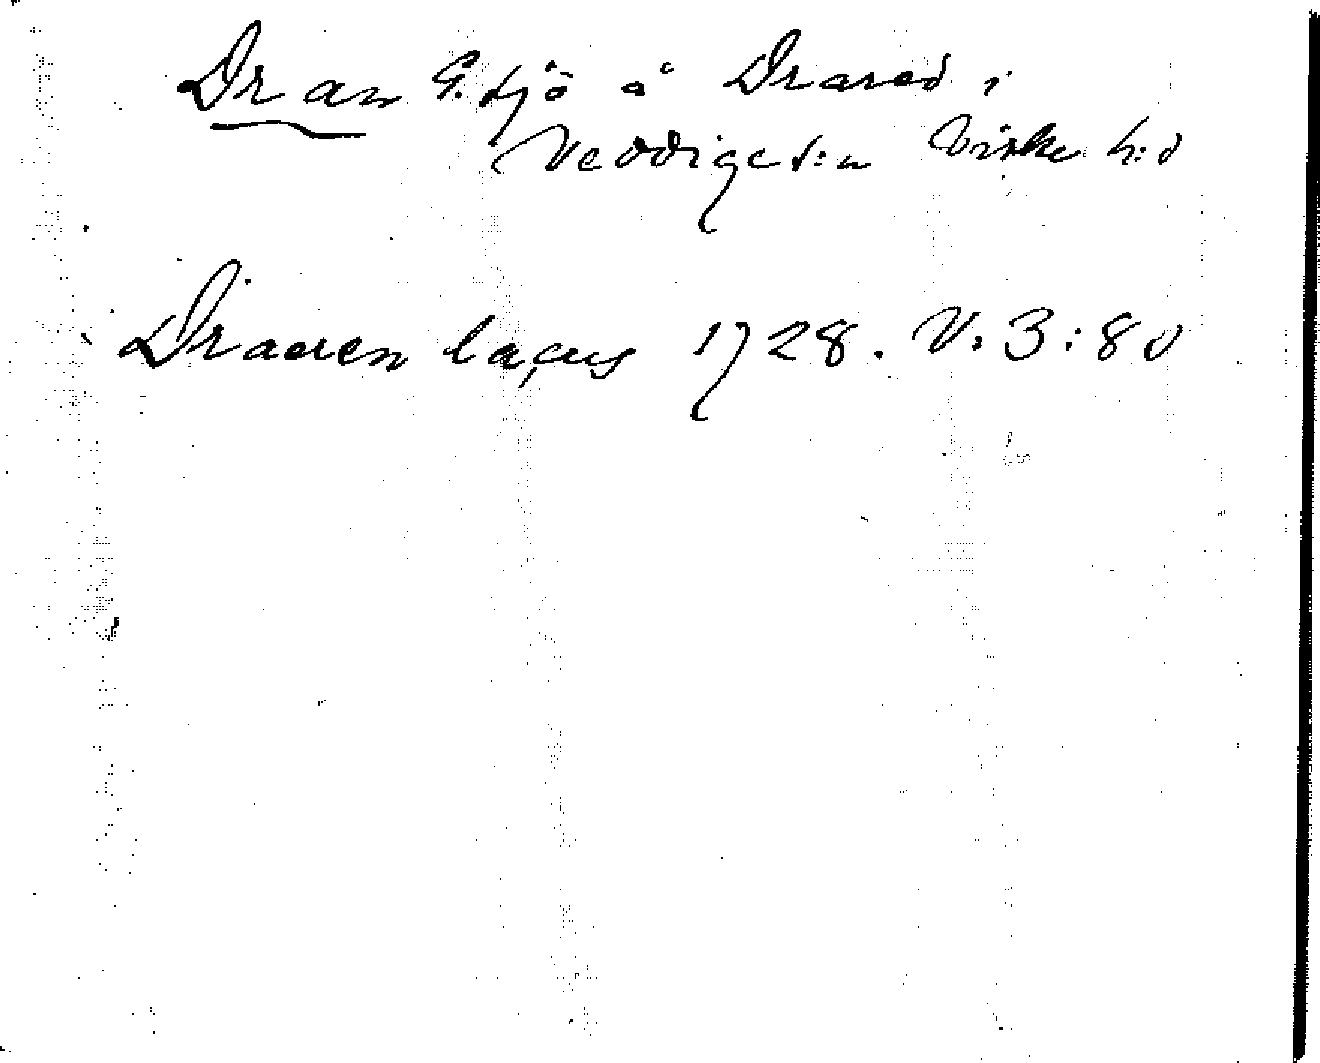 Dran G. sjö å Derared i
Veddige s:n Viske h:d
Draaren lacus 1728. V. 3:80